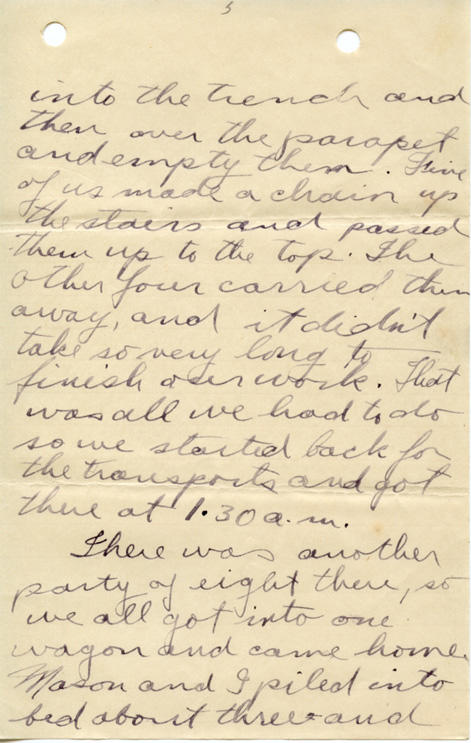 3
into the trench and
then over the parapet
and empty them. Five
of us made a chain up
the stairs and passed
them up to the top. The
other four carried them
away, and it didn't
take so very long to
finish our work. That
was all we had to do
so we started back for
the transports and got
there at 1.30 a.m.
There was another
party of eight there, so
we all got into one
wagon and came home.
Mason and I piled into
bed about three and